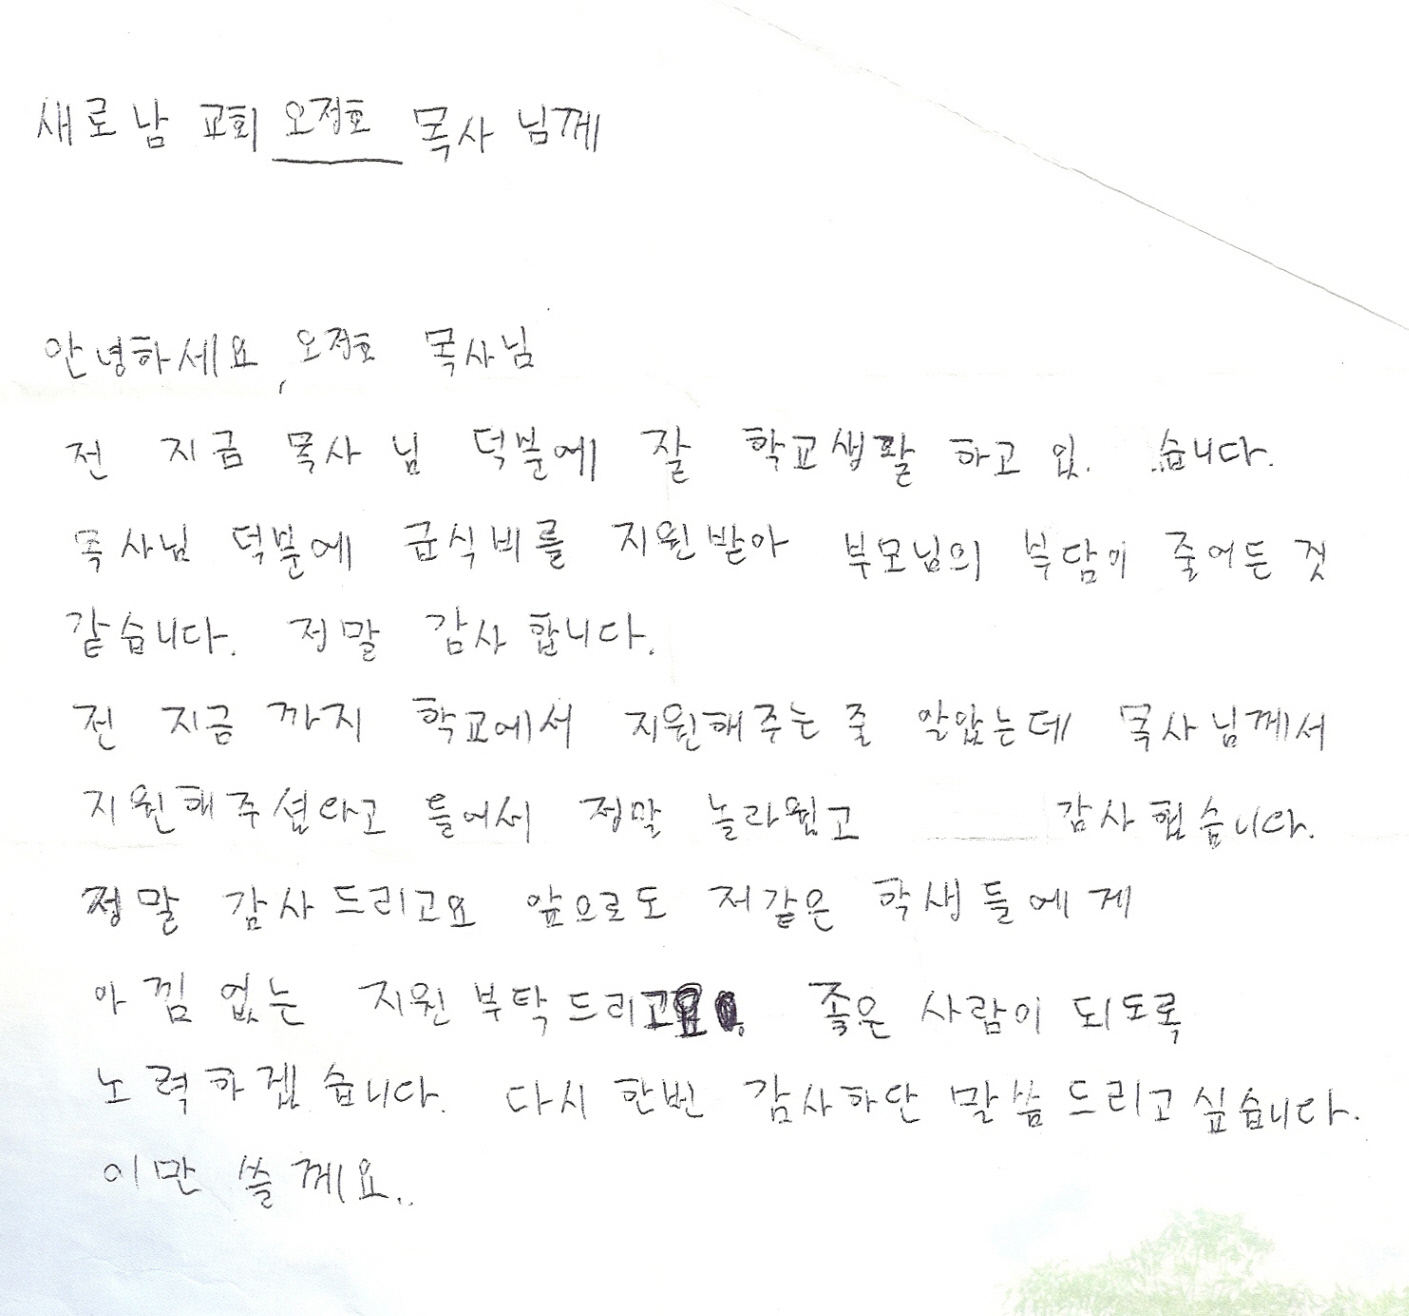 새로남 교회 오정호 목사 님께
안녕하세요, 오정호 목사님
전 지금 목사 님 덕분에 잘 학교생활 하고 있습니다.
목사님 덕분에 급식비를 지원받아 부모님의 부담이 줄어든 것
같습니다. 정말 감사 합니다.
전 지금 까지 학교에서 지원해주는 줄 알았는데 목사님께서
지원해주셨다고 들어서 정말 놀라웠고 감사했습니다.
정말 감사드리고요 앞으로도 저같은 학생들에게
아낌 없는 지원 부탁드리고요. 좋은 사람이 되도록
노력하겠습니다. 다시 한번 감사하단 말씀 드리고 싶습니다.
이만 쓸께요..